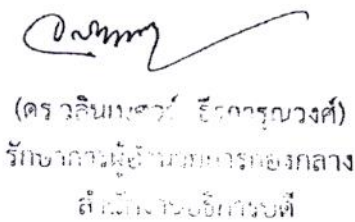 (ดร วลินเนศวร์ ธีรการุณวงศ์)
รักษาการผู้อำนวยการกองกลาง
สำนักงานอธิการบดี